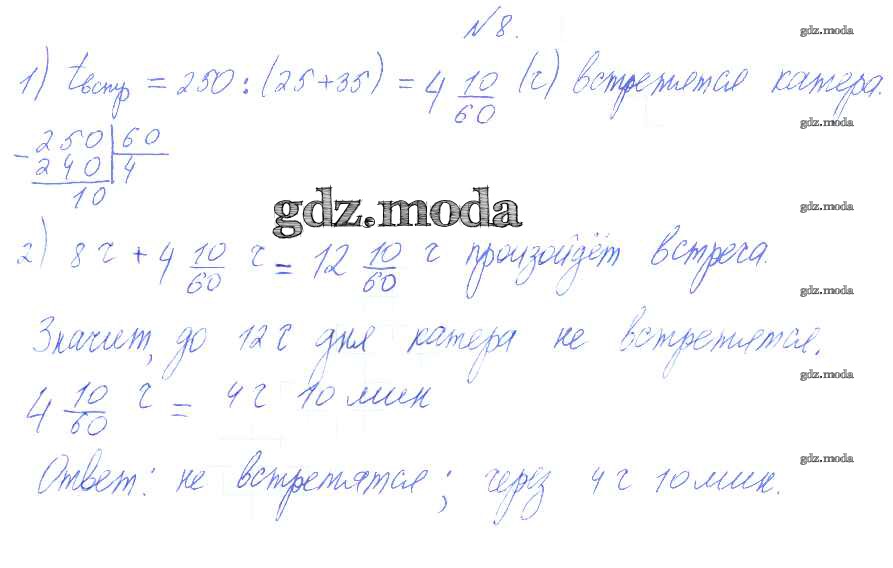 №8.
gdz.moda
1) tвстр = 250 : (25+35) = 4 10/60 (ч) встретятся катера.
gdz.moda
- 250 | 60
240 | 4
10
gdz.moda
gdz.moda
2) 8 ч + 4 10/60 ч = 12 10/60 ч произойдёт встреча.
gdz.moda
Значит, до 12 ч дня катера не встретятся.
gdz.moda
4 10/60 ч = 4 ч 10 мин
gdz.moda
Ответ: не встретятся; через 4 ч 10 мин.